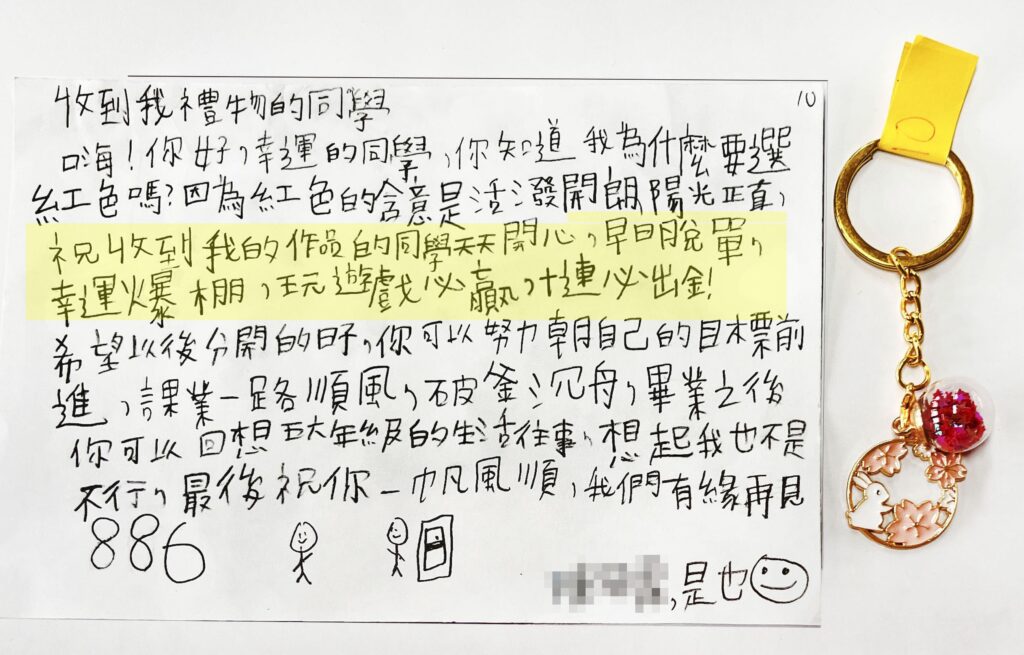 收到我禮物的同學
10
嗨!你好,幸運的同學,你知道我為什麼要選
紅色嗎?因為紅色的含意是活潑開朗陽光正直,
祝收到我的作品的同學天天開心,早日脫單,
幸運爆棚,玩遊戲必贏,十連必出金!
希望以後分開的日子,你可以努力朝自己的目標前
進,課業一路順風,破釜沉舟,畢業之後
你可以回想五六年級的生活往事,想起我也不是
不行,最後祝你一帆風順,我們有緣再見
886
,是也